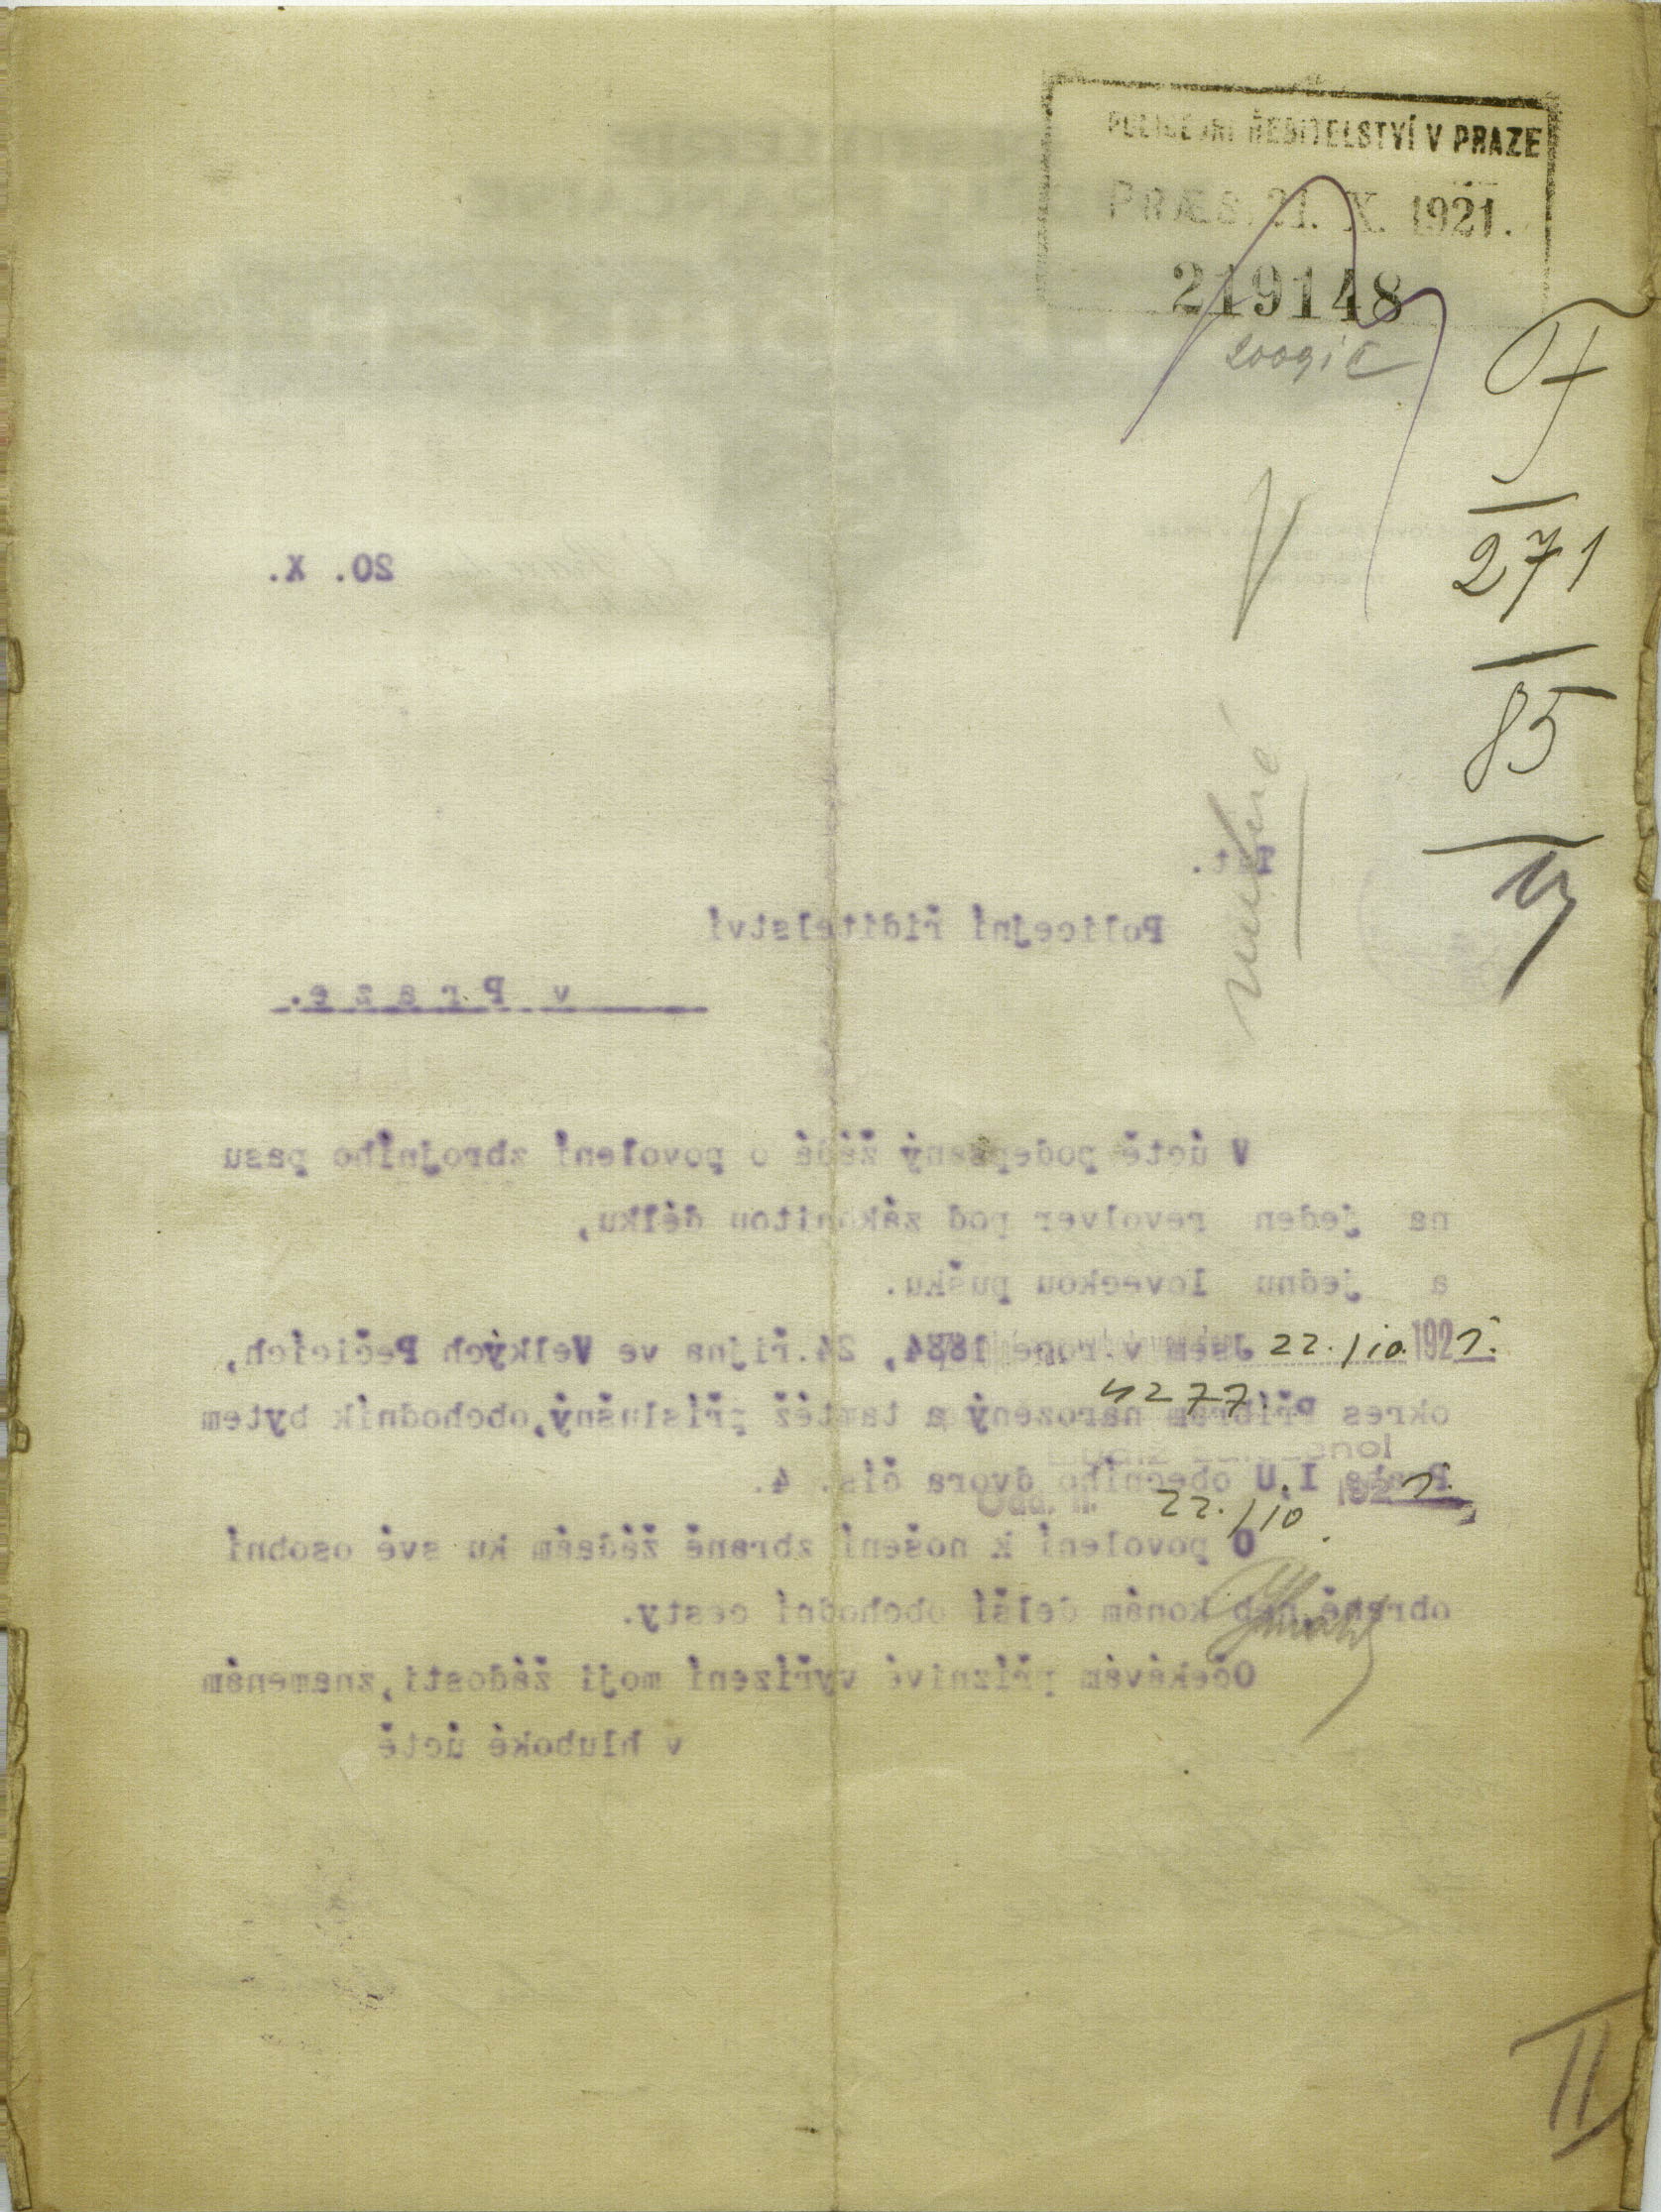 POLICEJNÍ ŘEDITELSTVÍ V PRAZE
PRÆS. 21. X. 1921.
219148
271
85
20. X.
Tit.
Policejní řiditelství
v Praze.
V úctě podepsaný žádá o povolení zbrojního pasu
na jeden revolver pod zákonitou délku,
a jednu loveckou pušku.
Jsem v roce 1884, 24. října ve Velkých Pečicích,
22./10. 1921.
okres Příbram narozený a tamtéž příslušný, obchodník bytem
4277
Praha I, U obecního dvora čís. 4.
22./10 1921.
O povolení k nošení zbraně žádám ku své osobní
obraně, neb konám delší obchodní cesty.
Očekávám příznivé vyřízení moji žádosti, znamenám
v hluboké úctě
II